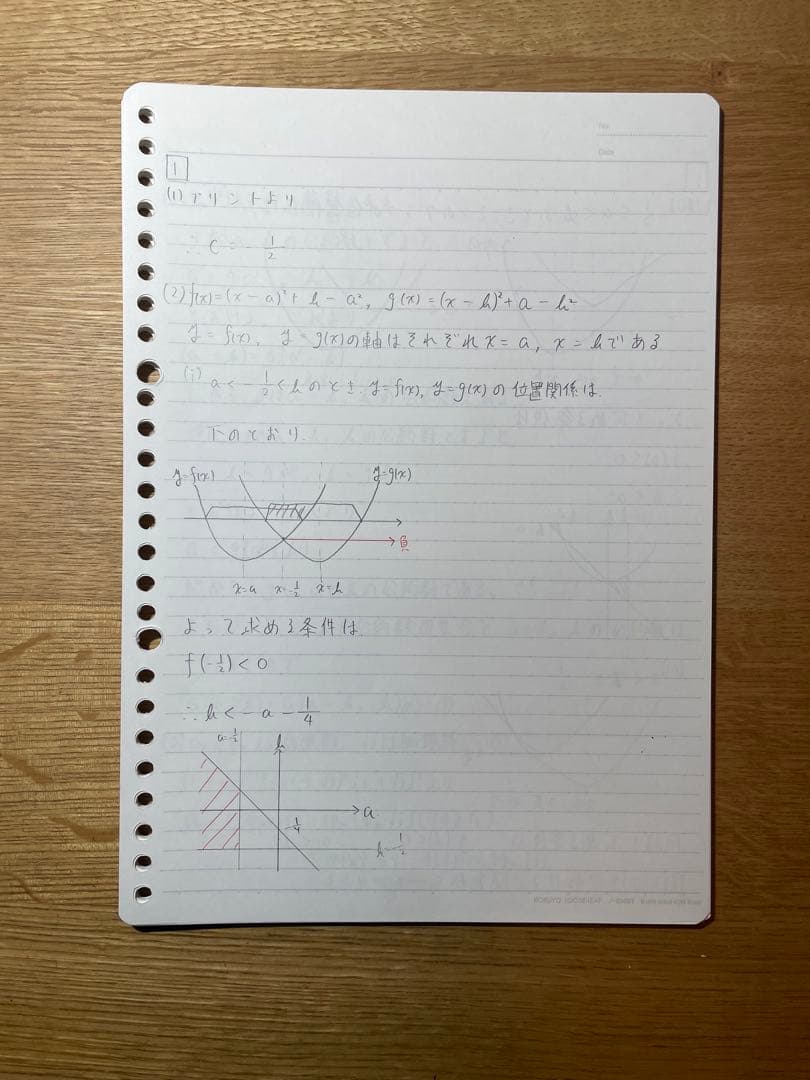 No.
Date
1
(1) プリントより
∴ C = -1/2
(2) f(x) = (x - a)² + b - a², g(x) = (x - b)² + a - b²
y = f(x), y = g(x)の軸はそれぞれ x = a, x = bである
(i) a < -1/2 < b のとき y = f(x), y = g(x) の位置関係は
下のとおり.
y=f(x) y=g(x)
負
x=a x=-1/2 x=b
よって求める条件は
f(-1/2) < 0
∴ b < -a - 1/4
a=-1/2 b
a
-1/4
b=-1/2